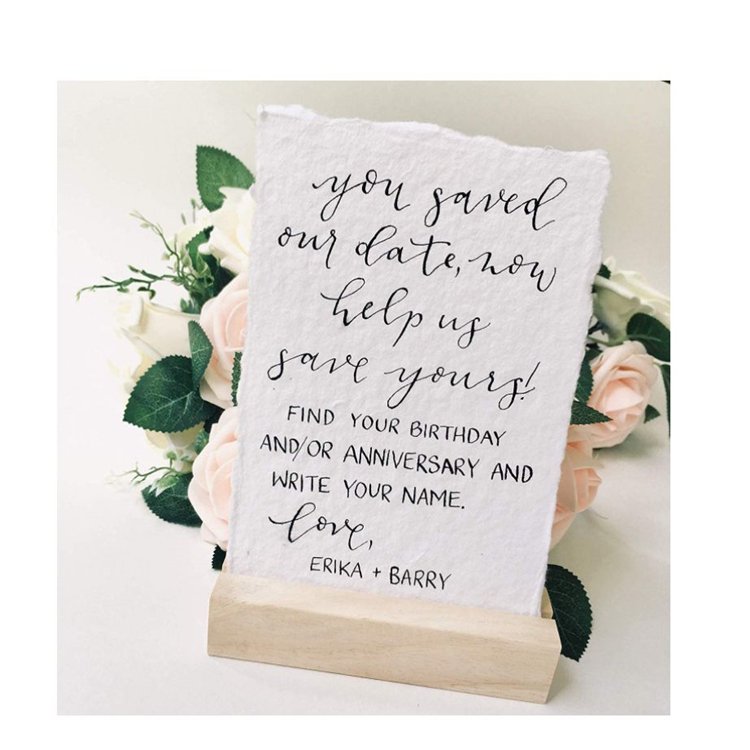 you saved
our date, now
help us
save yours!
FIND YOUR BIRTHDAY
AND/OR ANNIVERSARY AND
WRITE YOUR NAME.
love,
ERIKA + BARRY